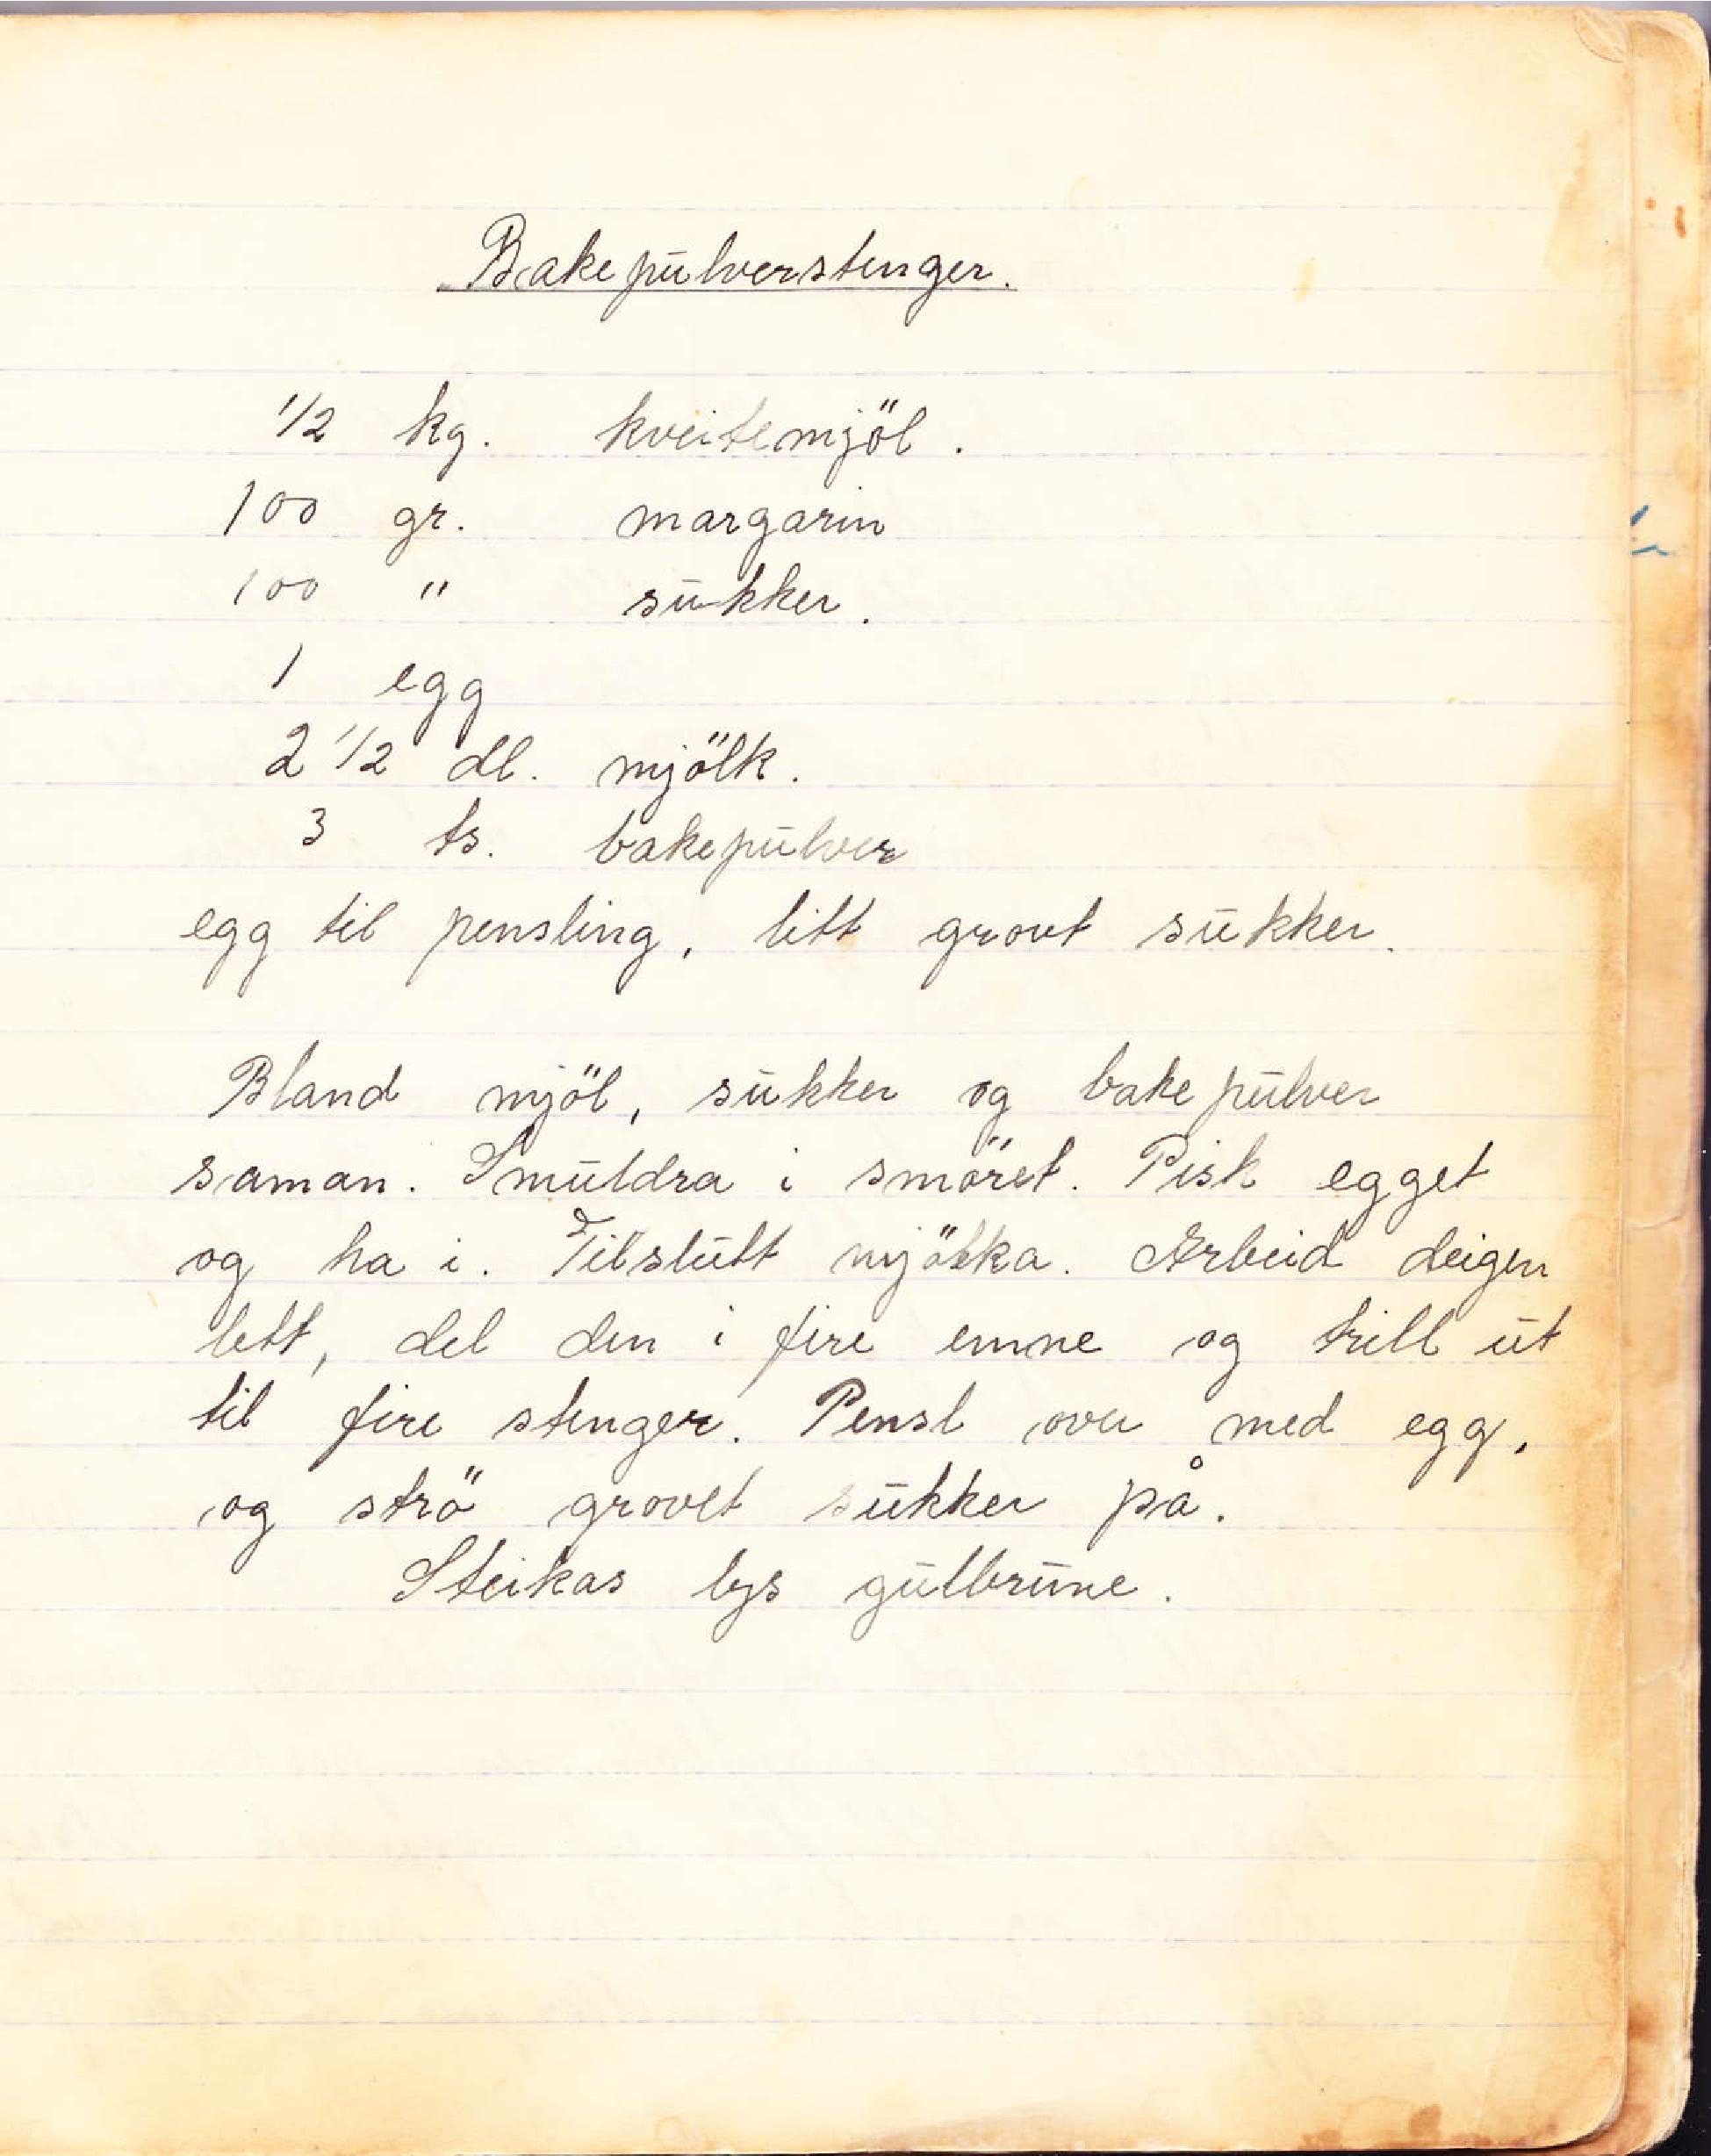 Bakepulverstenger.
1/2 kg. kveitemjöl.
100 gr. margarin
100 " sukker.
1 egg
2 1/2 dl. mjölk.
3 ts. bakepulver
egg til pensling, litt grovt sukker.
Bland mjöl, sukker og bakepulver
saman. Smuldra i smöret. Pisk egget
og ha i. Tilslutt mjölka. Arbeid deigen
lett, del den i fire emne og trill ut
til fire stenger. Pensl over med egg,
og strö grovlt sukker på.
Steikas lys gulbrune.